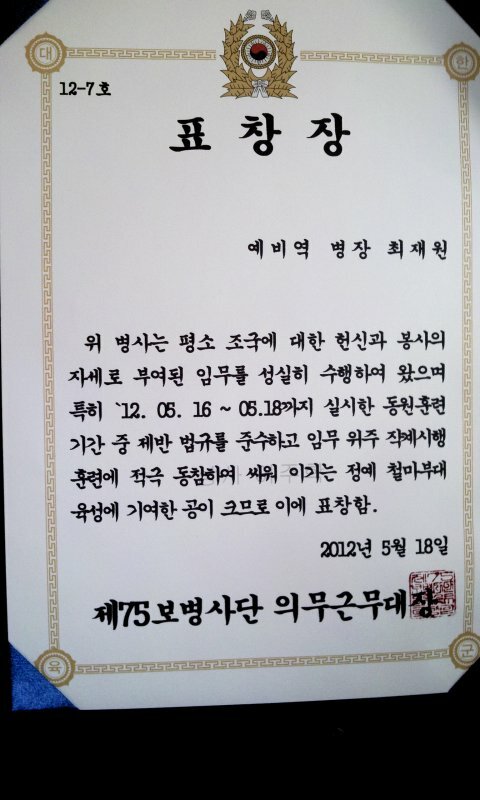 대
한
12-7호
표 창 장
예비역 병장 최재원
위 병사는 평소 조국에 대한 헌신과 봉사의
자세로 부여된 임무를 성실히 수행하여 왔으며
특히 `12. 05. 16 ~ 05.18까지 실시한 동원훈련
기간 중 제반 법규를 준수하고 임무 위주 작계시행
훈련에 적극 동참하여 싸워 이기는 정예 철마부대
육성에 기여한 공이 크므로 이에 표창함.
2012년 5월 18일
제75보병사단 의무근무대장
육
군